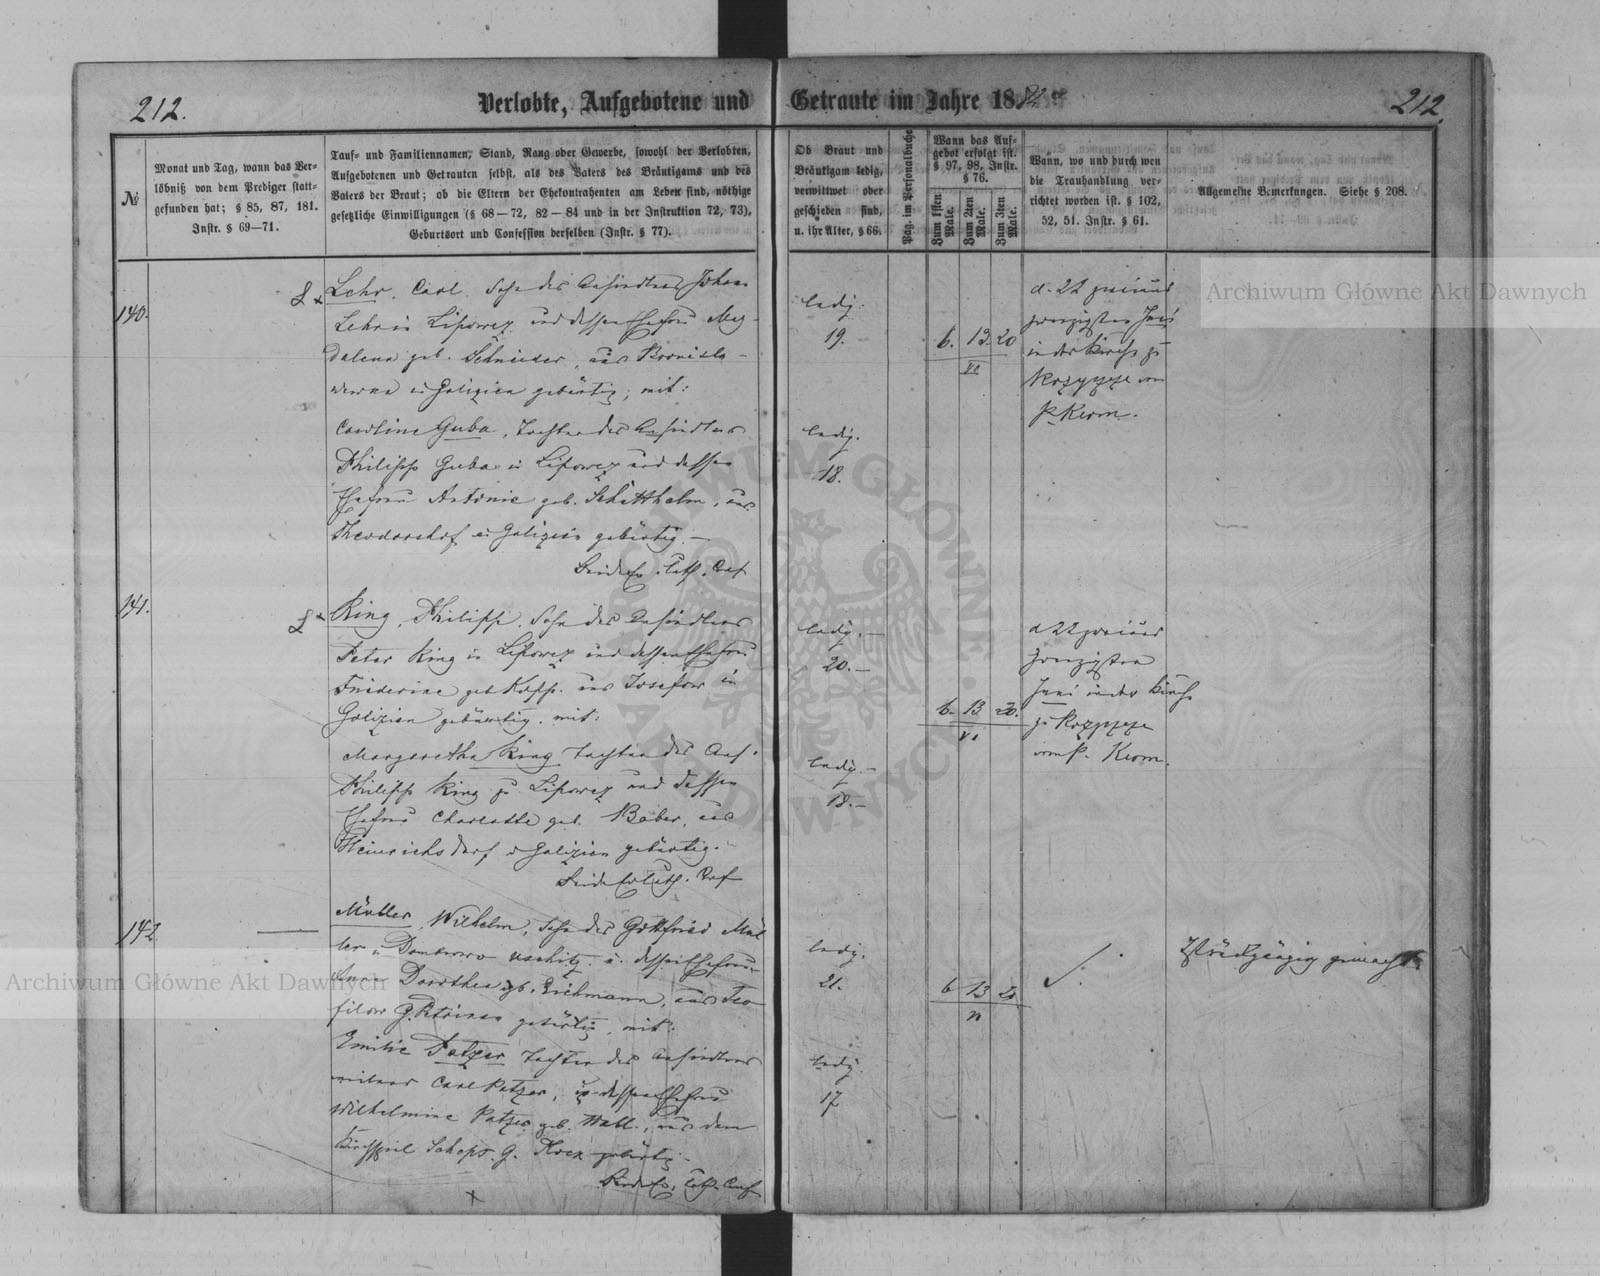 212.
Verlobte, Aufgebotene und Getraute im Jahre 1882
212.
№
Monat und Tag, wann das Ver-
löbniß von dem Prediger statt-
gefunden hat; § 85, 87, 181.
Instr. § 69—71.
Tauf- und Familiennamen, Stand, Rang oder Gewerbe, sowohl der Verlobten,
Aufgebotenen und Getrauten selbst, als des Vaters des Bräutigams und des
Vaters der Braut; ob die Eltern der Ehekontrahenten am Leben sind, nöthige
gesetzliche Einwilligungen (§ 68—72, 82—84 und in der Instruktion 72, 73),
Geburtsort und Confession derselben (Instr. § 77).
Ob Braut und
Bräutigam ledig,
verwittwet oder
geschieden sind,
u. ihr Alter, § 66.
Pag. im Personalbuche
Wann das Auf-
gebot erfolgt ist.
§ 97, 98, Instr.
§ 76.
Zum 1sten Male.
Zum 2ten Male.
Zum 3ten Male.
Wann, wo und durch wen
die Trauhandlung ver-
richtet worden ist. § 102,
52, 51. Instr. § 61.
Allgemeine Bemerkungen. Siehe § 208.
140.
Lehr, Carl, Sohn des Ansiedlers Johann
Lehr in Lipowez und dessen Ehefrau Mag-
dalena geb. Schnieder, aus Bronisla-
wowna in Galizien gebürtig; mit:
Caroline Guba, Tochter des Ansiedlers
Philipp Guba in Lipowez und dessen
Ehefrau Antonie geb. Schitthelm, aus
Theodorshof in Galizien gebürtig. —
Beide Ev. luth. Conf
ledig.
19.
ledig.
18.
6. 13. 20
VI
d. 22 zwei und
zwanzigsten Juni
in der Kirche zu
vom
P. Kerm.
141.
Ring, Philipp, Sohn des Ansiedlers
Peter Ring in Lipowez und dessen Ehefrau
Friederine geb. aus Josefow in
Galizien gebürtig. mit:
Margaretha Ring Tochter des Ans.
Philipp Ring zu Lipowez und dessen
Ehefrau Charlotte geb. Baber, aus
Heinrichsdorf in Galizien gebürtig.
Beide Ev luth. Conf
ledig. —
20. —
ledig. —
18. —
6. 13 20.
VI
d 22 zwei und
zwanzigsten
Juni in der Kirche
zu
vom P. Kerm.
142
Müller, Wilhelm, Sohn des Gottfried Mül
ler in Dombrowo u. dessen Ehefrau
Anna Dorothea geb. Eichmann, aus Teo
filow G. gebürtig, mit:
Emilie Patzer Tochter des Ansiedlers
weiland Carl Patzer, u. dessen Ehefrau
Wilhelmine Patzer geb. Wall., aus dem
Kirchspiel G. gebürtig.
Beide Ev. luth. Conf
ledig.
21.
ledig.
17
6 13 20
VI
Ist rückgängig gemacht.
Archiwum Główne Akt Dawnych
Archiwum Główne Akt Dawnych
ARCHIWUM GŁÓWNE AKT DAWNYCH